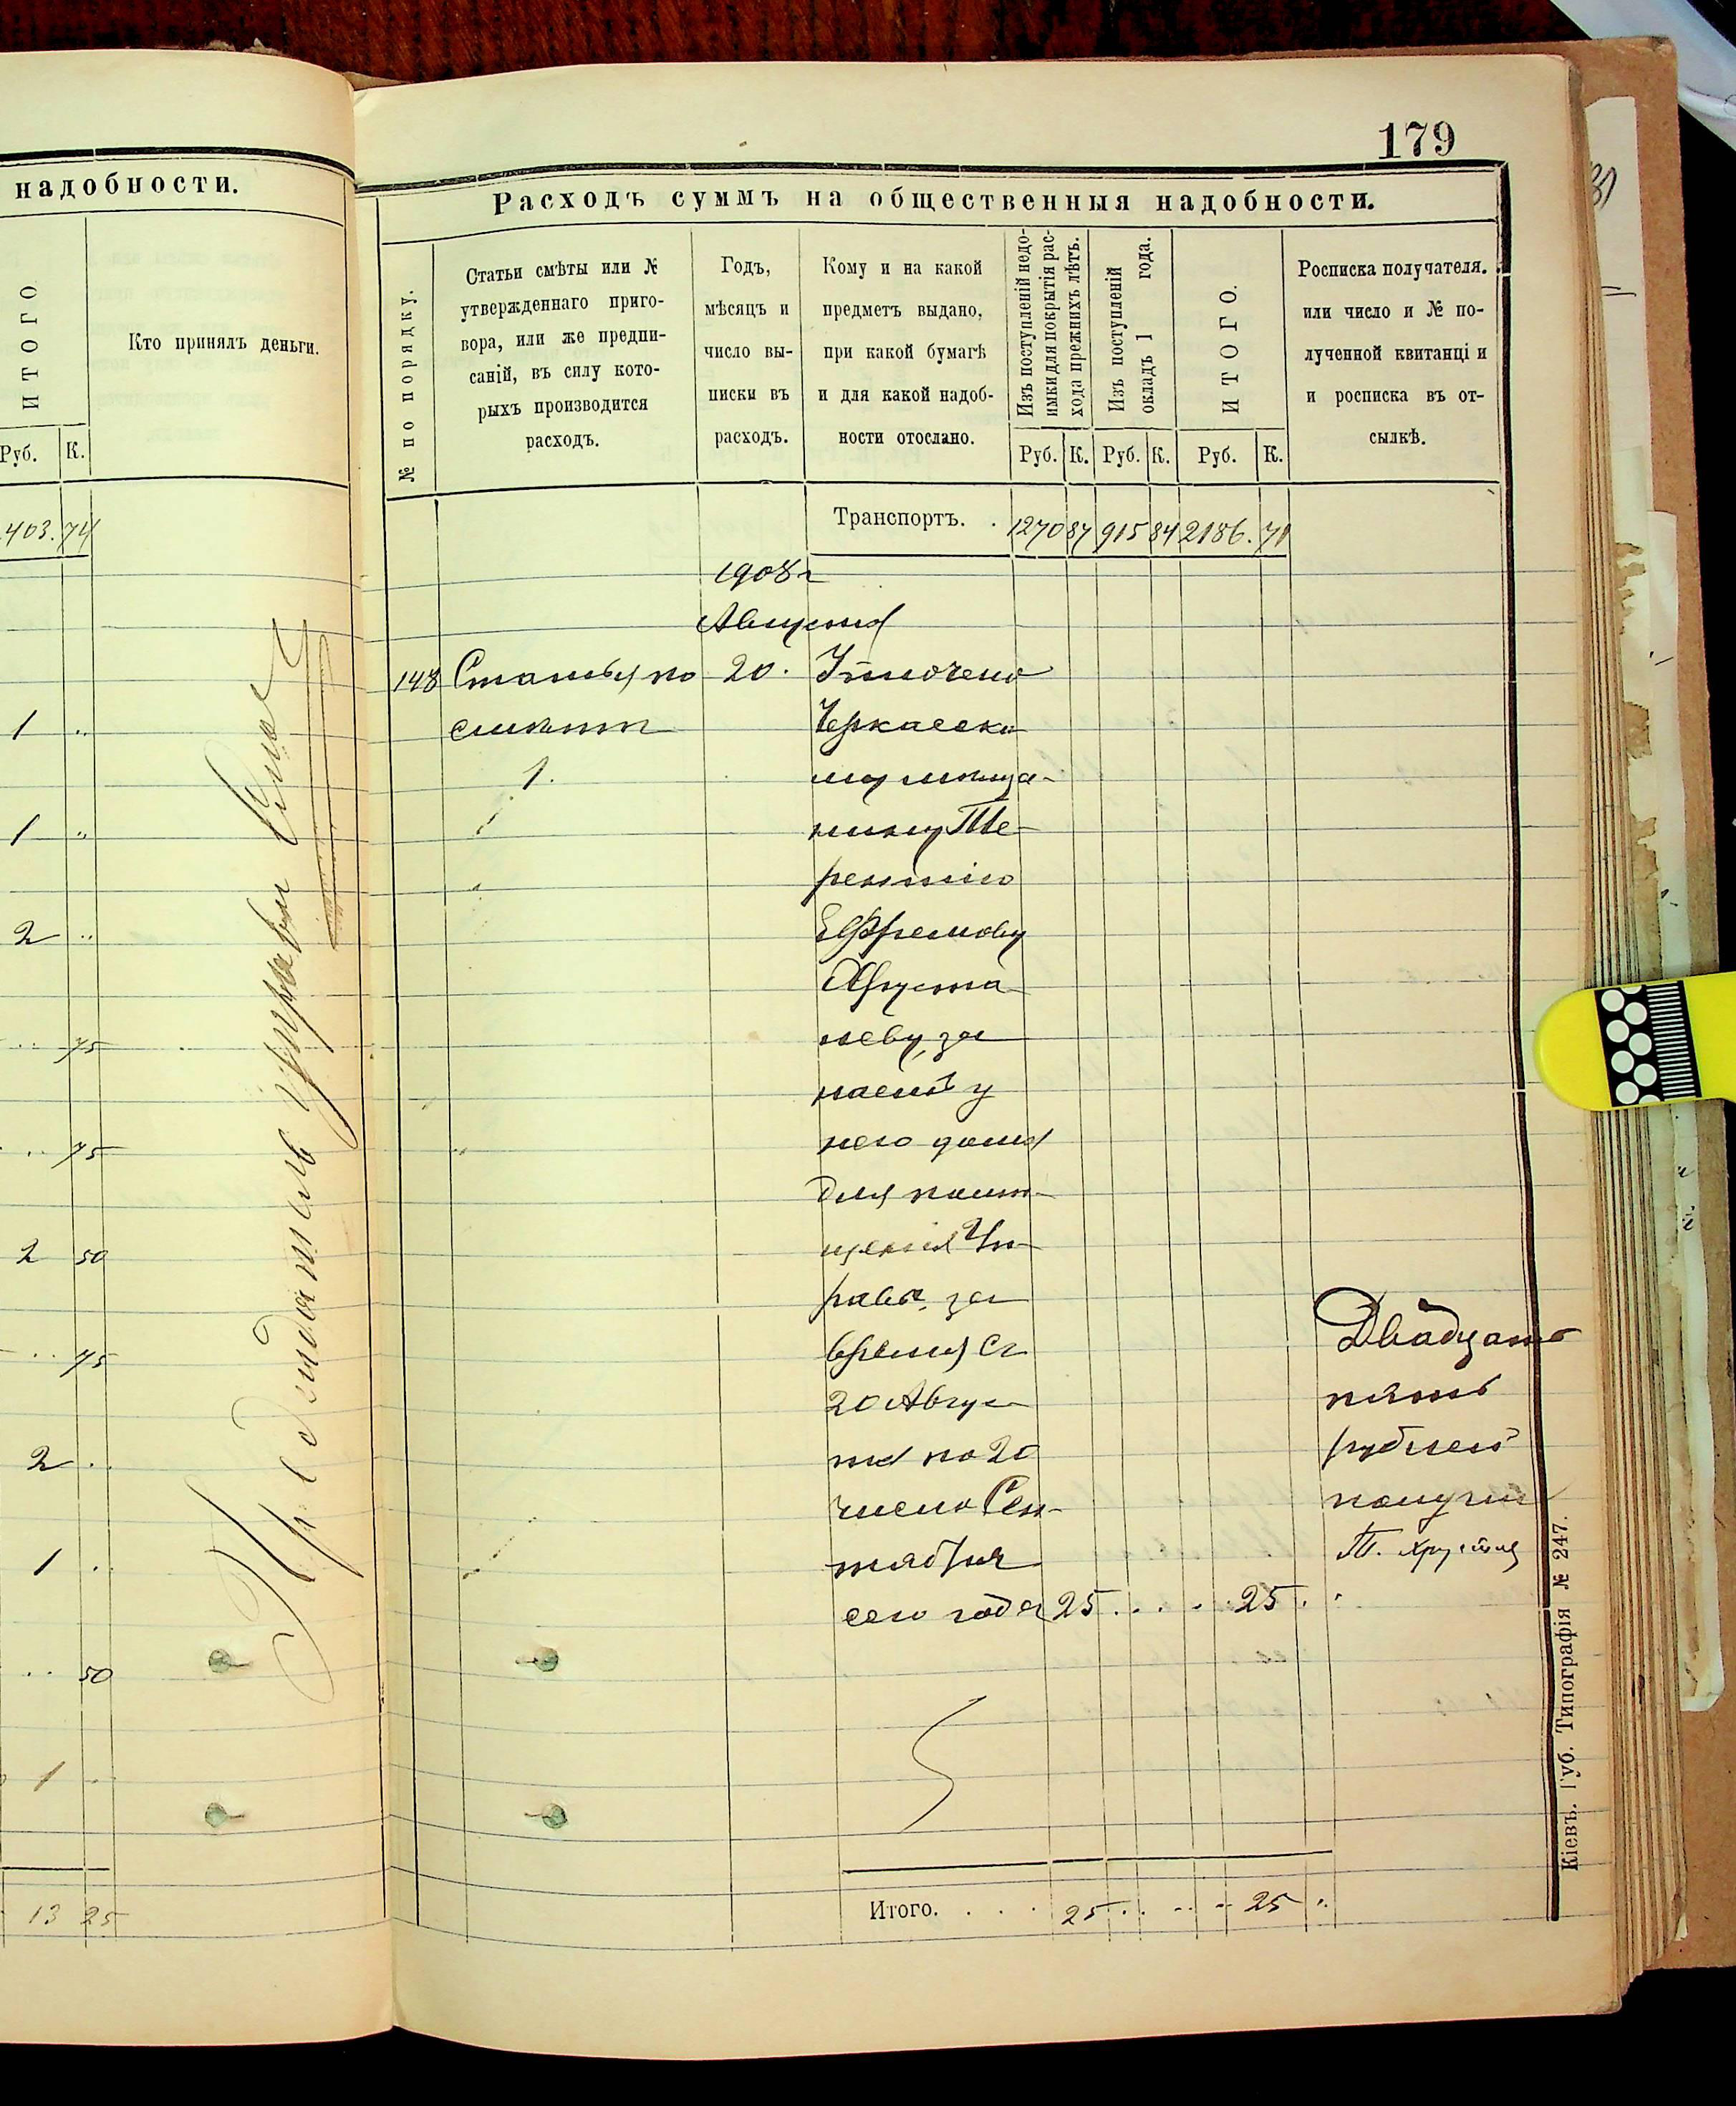 надобности.
ИТОГО
Кто принялъ деньги.
Руб. К.
403. 74
1 "
1 "
2 "
.. 75
.. 75
2 50
.. 75
2 ..
1 ..
.. 50
1 ..
13 25
Предсѣдатель управы
179
Расходъ суммъ на общественныя надобности.
№ по порядку.
Статьи смѣты или №
утвержденнаго приго-
вора, или же предпи-
саній, въ силу кото-
рыхъ производится
расходъ.
Годъ,
мѣсяцъ и
число вы-
писки въ
расходъ.
Кому и на какой
предметъ выдано,
при какой бумагѣ
и для какой надоб-
ности отослано.
Изъ поступленій недо-
имки для покрытія рас-
хода прежнихъ лѣтъ.
Изъ поступленій
окладъ 1 года.
ИТОГО.
Росписка получателя.
или число и № по-
лученной квитанціи
и росписка въ от-
сылкѣ.
Руб. К. Руб. К. Руб. К.
Транспортъ. . 1270 87 915 84 2186. 71
1908 г
Августа
148 Статья по 20. Уплочено
смѣтѣ Черкаско
1. му мѣща-
нину Те-
рентію
Ефремову
Хруста
леву, за
наемъ у
него дома
для помѣ-
щенія Уп-
равы, за
время съ
20 Авгус
та по 20
число Сен-
тября
сего года 25 . . . . . 25 . .
Двадцать
пять
рублей
получил
Т. Хруст
Итого. . . . 25 . . .. .. 25 ..
Кіевъ. Губ. Типографія № 247.